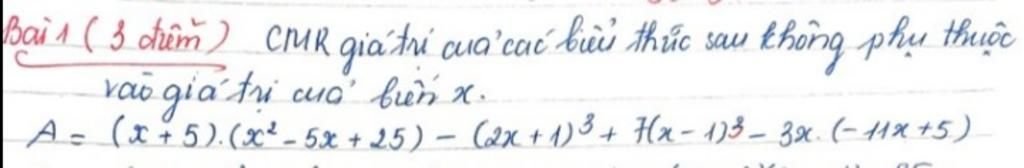 Bài 1 (3 điểm) CMR giá trị của các biểu thức sau không phụ thuộc
vào giá trị của biến x.
A = (x + 5).(x² - 5x + 25) - (2x + 1)³ + 7(x - 1)³ - 3x.(-11x + 5)